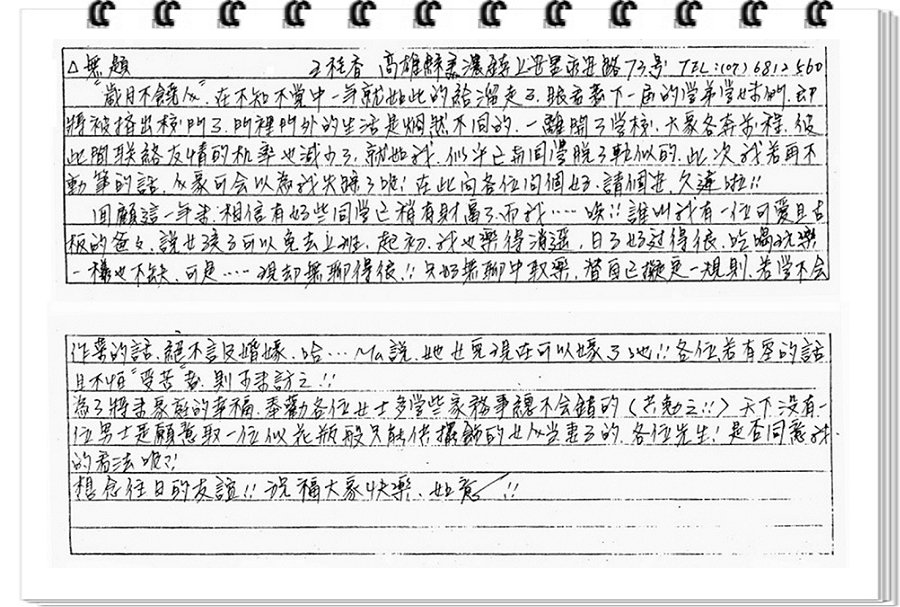 △無題 王桂香 高雄縣美濃鎮上安里永安路73号 TEL:(07)6812560
"歲月不饒人",在不知不覚中一年就如此的給溜走了,眼看著下一屆的学弟学妹们,即
將被挤出校门了,门裡门外的生活是炯然不同的,一離開了学校,大家各奔前程,彼
此間联絡友情的机率也減少了,就如我,似乎已與同学脱了軌似的,此次我若再不
動筆的話,人家可会以為我失踪了呢!在此向各位问個好,請個安,久違啦!!
回顧這一年来,相信有好些同学已稍有財富了,而我‥‥唉!!誰叫我有一位可愛且古
板的爸々,說女孩子可以免去上班,起初,我也樂得消遥,日子也过得很,吃喝玩樂
一樣也不缺,可是‥‥現却無聊得很!!只好無聊中取樂,替自己擬定一規則,若学不会
作菜的話,絕不言及婚嫁,哈…Ma說,她女兒現在可以嫁了吔!!各位若有空的話
且不怕"受苦"者,則可来訪之!!
為了將来家庭的幸福,奉勸各位女士多学些家務事總不会錯的(共勉之!!)天下没有一
位男士是願意取一位似花瓶般只能供擺飾的女人当妻子的,各位先生!是否同意我
的看法呢?!
想念往日的友誼!!祝福大家快樂、如意!!